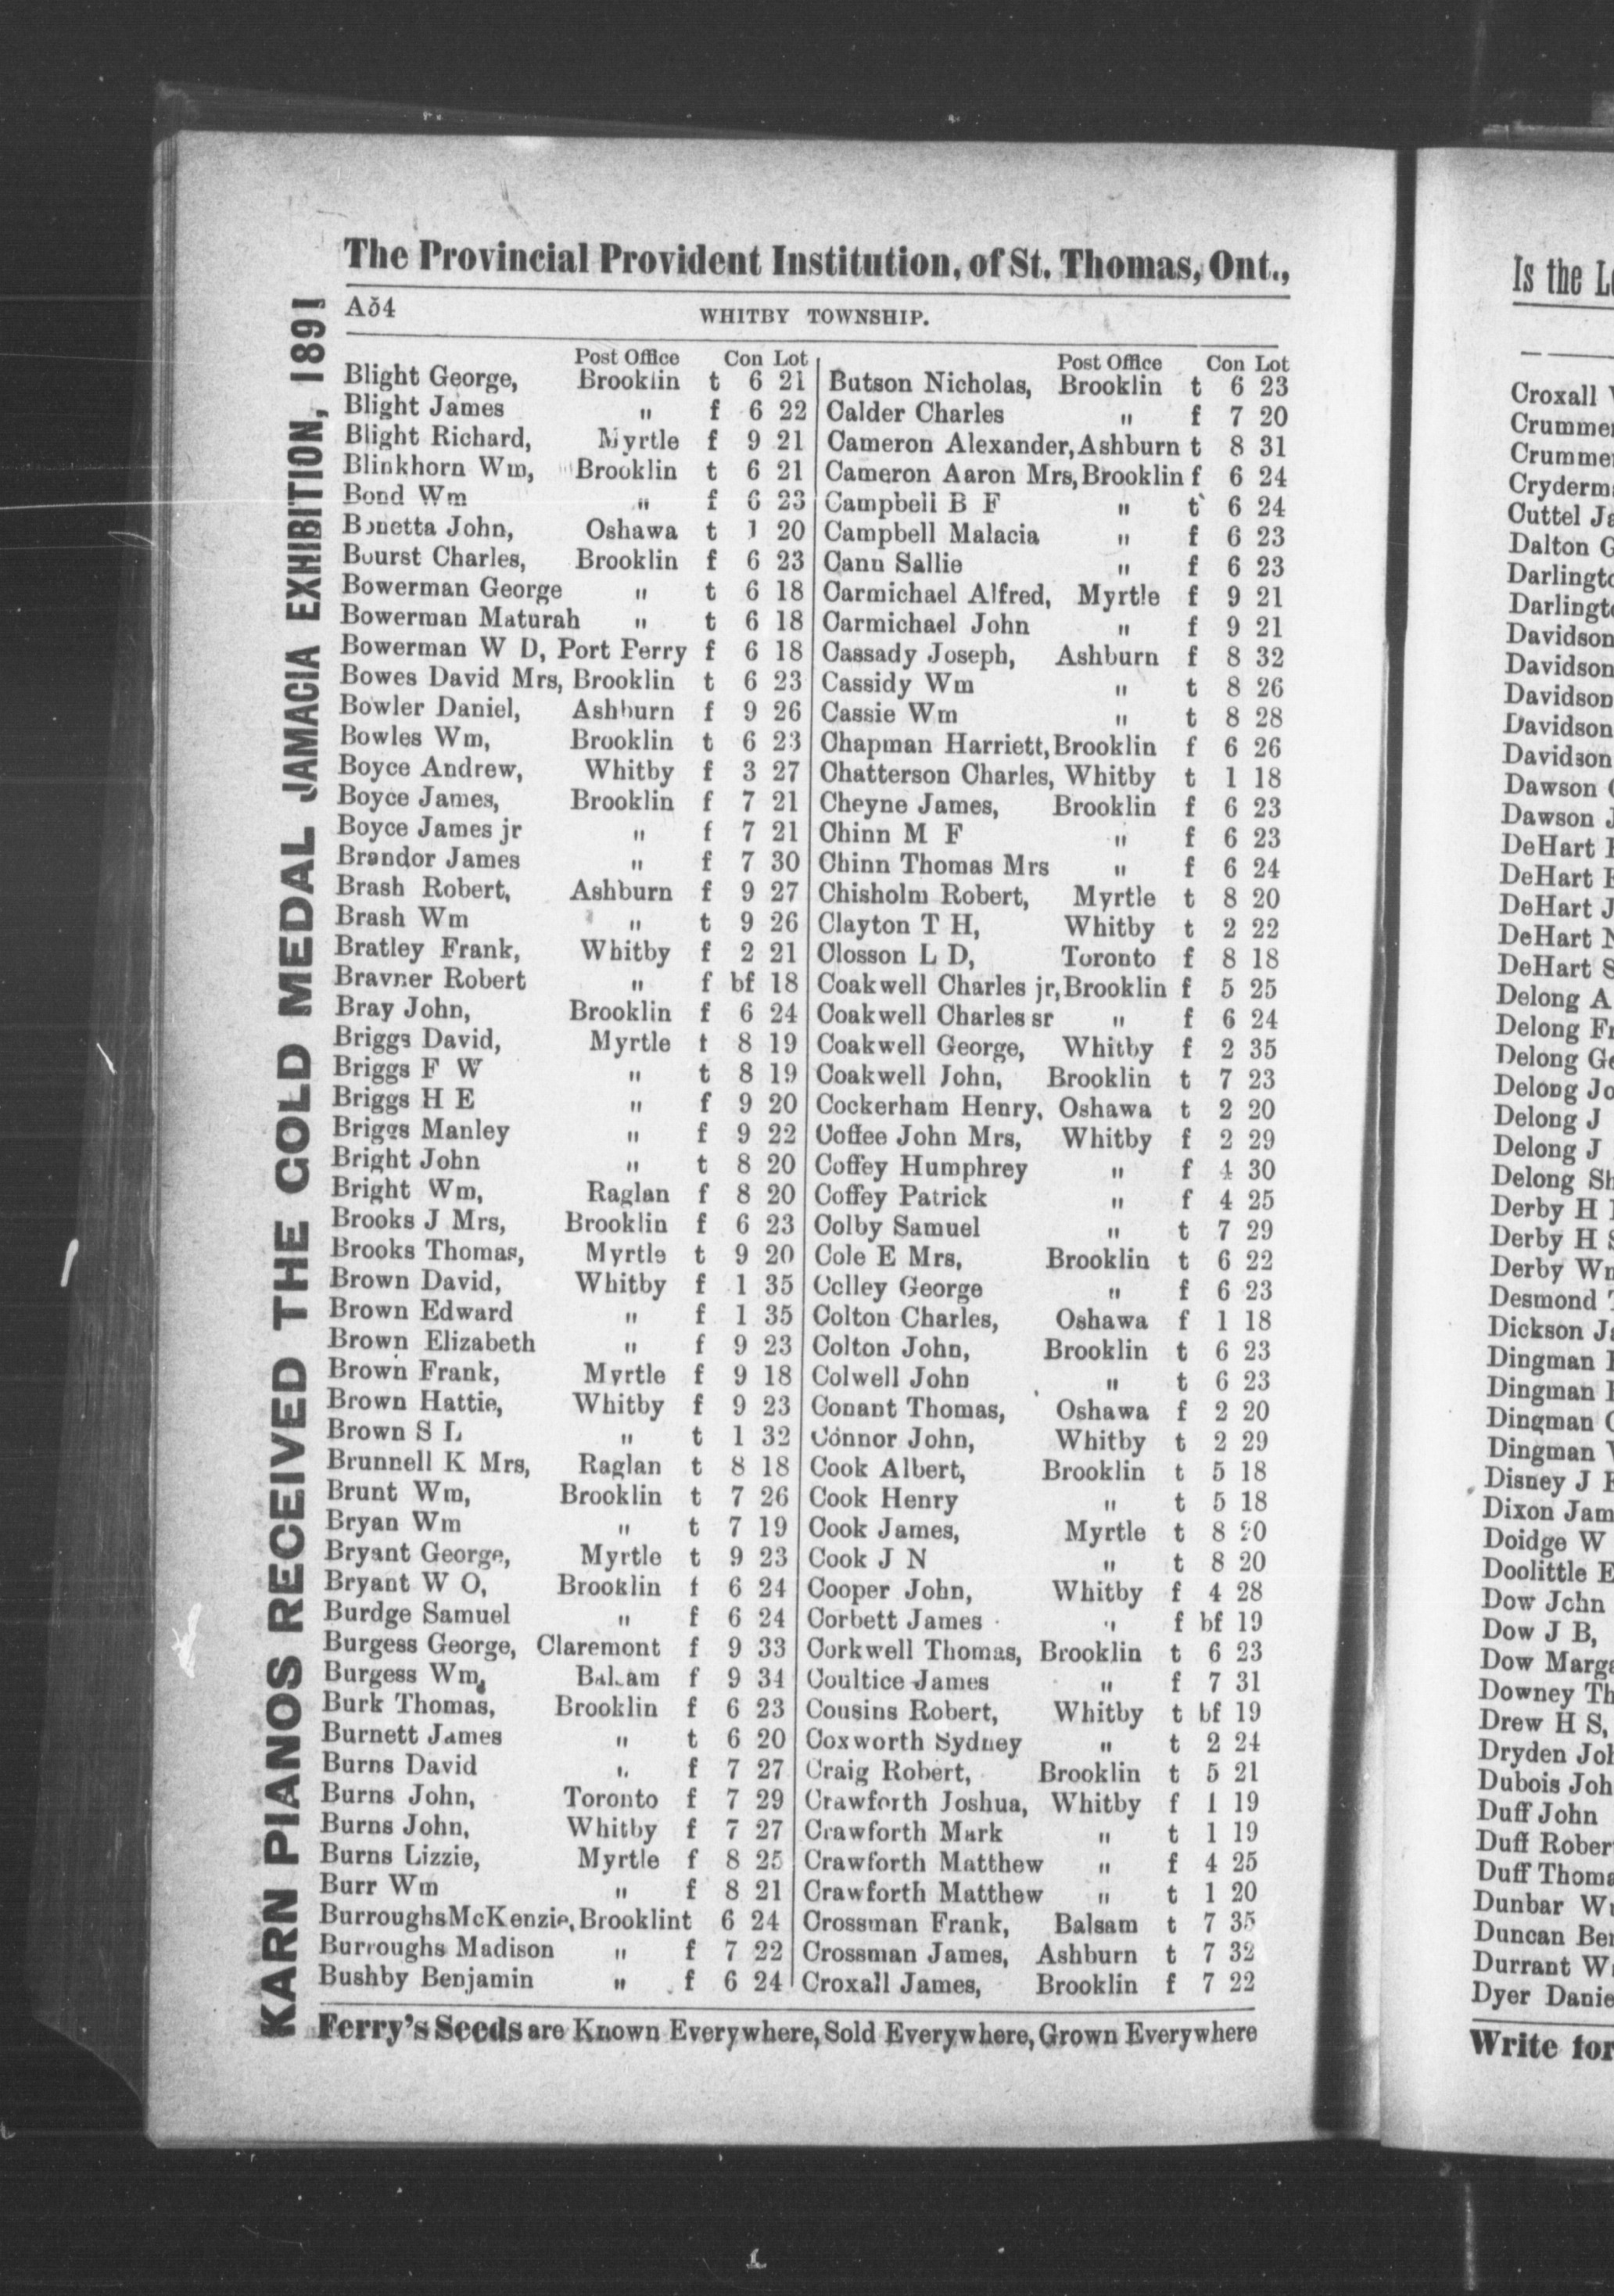 The Provincial Provident Institution, of St. Thomas, Ont.,
A54 WHITBY TOWNSHIP.
KARN PIANOS RECEIVED THE GOLD MEDAL JAMACIA EXHIBITION, 1891
Post Office Con Lot
Blight George, Brooklin t 6 21
Blight James " f 6 22
Blight Richard, Myrtle f 9 21
Blinkhorn Wm, Brooklin t 6 21
Bond Wm " f 6 23
Bonetta John, Oshawa t 1 20
Bourst Charles, Brooklin f 6 23
Bowerman George " t 6 18
Bowerman Maturah " t 6 18
Bowerman W D, Port Perry f 6 18
Bowes David Mrs, Brooklin t 6 23
Bowler Daniel, Ashburn f 9 26
Bowles Wm, Brooklin t 6 23
Boyce Andrew, Whitby f 3 27
Boyce James, Brooklin f 7 21
Boyce James jr " f 7 21
Brandor James " f 7 30
Brash Robert, Ashburn f 9 27
Brash Wm " t 9 26
Bratley Frank, Whitby f 2 21
Bravner Robert " f bf 18
Bray John, Brooklin f 6 24
Briggs David, Myrtle t 8 19
Briggs F W " t 8 19
Briggs H E " f 9 20
Briggs Manley " f 9 22
Bright John " t 8 20
Bright Wm, Raglan f 8 20
Brooks J Mrs, Brooklin f 6 23
Brooks Thomas, Myrtle t 9 20
Brown David, Whitby f 1 35
Brown Edward " f 1 35
Brown Elizabeth " f 9 23
Brown Frank, Myrtle f 9 18
Brown Hattie, Whitby f 9 23
Brown S L " t 1 32
Brunnell K Mrs, Raglan t 8 18
Brunt Wm, Brooklin t 7 26
Bryan Wm " t 7 19
Bryant George, Myrtle t 9 23
Bryant W O, Brooklin f 6 24
Burdge Samuel " f 6 24
Burgess George, Claremont f 9 33
Burgess Wm, Balsam f 9 34
Burk Thomas, Brooklin f 6 23
Burnett James " t 6 20
Burns David " f 7 27
Burns John, Toronto f 7 29
Burns John, Whitby f 7 27
Burns Lizzie, Myrtle f 8 25
Burr Wm " f 8 21
BurroughsMcKenzie, Brooklint 6 24
Burroughs Madison " f 7 22
Bushby Benjamin " f 6 24
Post Office Con Lot
Butson Nicholas, Brooklin t 6 23
Calder Charles " f 7 20
Cameron Alexander, Ashburn t 8 31
Cameron Aaron Mrs, Brooklin f 6 24
Campbell B F " t 6 24
Campbell Malacia " f 6 23
Cann Sallie " f 6 23
Carmichael Alfred, Myrtle f 9 21
Carmichael John " f 9 21
Cassady Joseph, Ashburn f 8 32
Cassidy Wm " t 8 26
Cassie Wm " t 8 28
Chapman Harriett, Brooklin f 6 26
Chatterson Charles, Whitby t 1 18
Cheyne James, Brooklin f 6 23
Chinn M F " f 6 23
Chinn Thomas Mrs " f 6 24
Chisholm Robert, Myrtle t 8 20
Clayton T H, Whitby t 2 22
Closson L D, Toronto f 8 18
Coakwell Charles jr, Brooklin f 5 25
Coakwell Charles sr " f 6 24
Coakwell George, Whitby f 2 35
Coakwell John, Brooklin t 7 23
Cockerham Henry, Oshawa t 2 20
Coffee John Mrs, Whitby f 2 29
Coffey Humphrey " f 4 30
Coffey Patrick " f 4 25
Colby Samuel " t 7 29
Cole E Mrs, Brooklin t 6 22
Colley George " f 6 23
Colton Charles, Oshawa f 1 18
Colton John, Brooklin t 6 23
Colwell John " t 6 23
Conant Thomas, Oshawa f 2 20
Connor John, Whitby t 2 29
Cook Albert, Brooklin t 5 18
Cook Henry " t 5 18
Cook James, Myrtle t 8 20
Cook J N " t 8 20
Cooper John, Whitby f 4 28
Corbett James " f bf 19
Corkwell Thomas, Brooklin t 6 23
Coultice James " f 7 31
Cousins Robert, Whitby t bf 19
Coxworth Sydney " t 2 24
Craig Robert, Brooklin t 5 21
Crawforth Joshua, Whitby f 1 19
Crawforth Mark " t 1 19
Crawforth Matthew " f 4 25
Crawforth Matthew " t 1 20
Crossman Frank, Balsam t 7 35
Crossman James, Ashburn t 7 32
Croxall James, Brooklin f 7 22
Ferry's Seeds are Known Everywhere, Sold Everywhere, Grown Everywhere
Is the
Croxall
Dalton
Davidson
Davidson
Davidson
Davidson
Davidson
Dawson
Dawson
DeHart
DeHart
DeHart
DeHart
DeHart
Delong A
Delong
Delong
Delong
Delong J
Delong J
Delong
Derby H
Derby H
Derby
Desmond
Dickson
Dingman
Dingman
Dingman
Dingman
Disney J
Dixon
Doidge W
Doolittle
Dow John
Dow J B,
Dow
Downey
Drew H S,
Dryden
Dubois
Duff John
Duff
Duff
Dunbar
Duncan
Durrant
Dyer
Write for